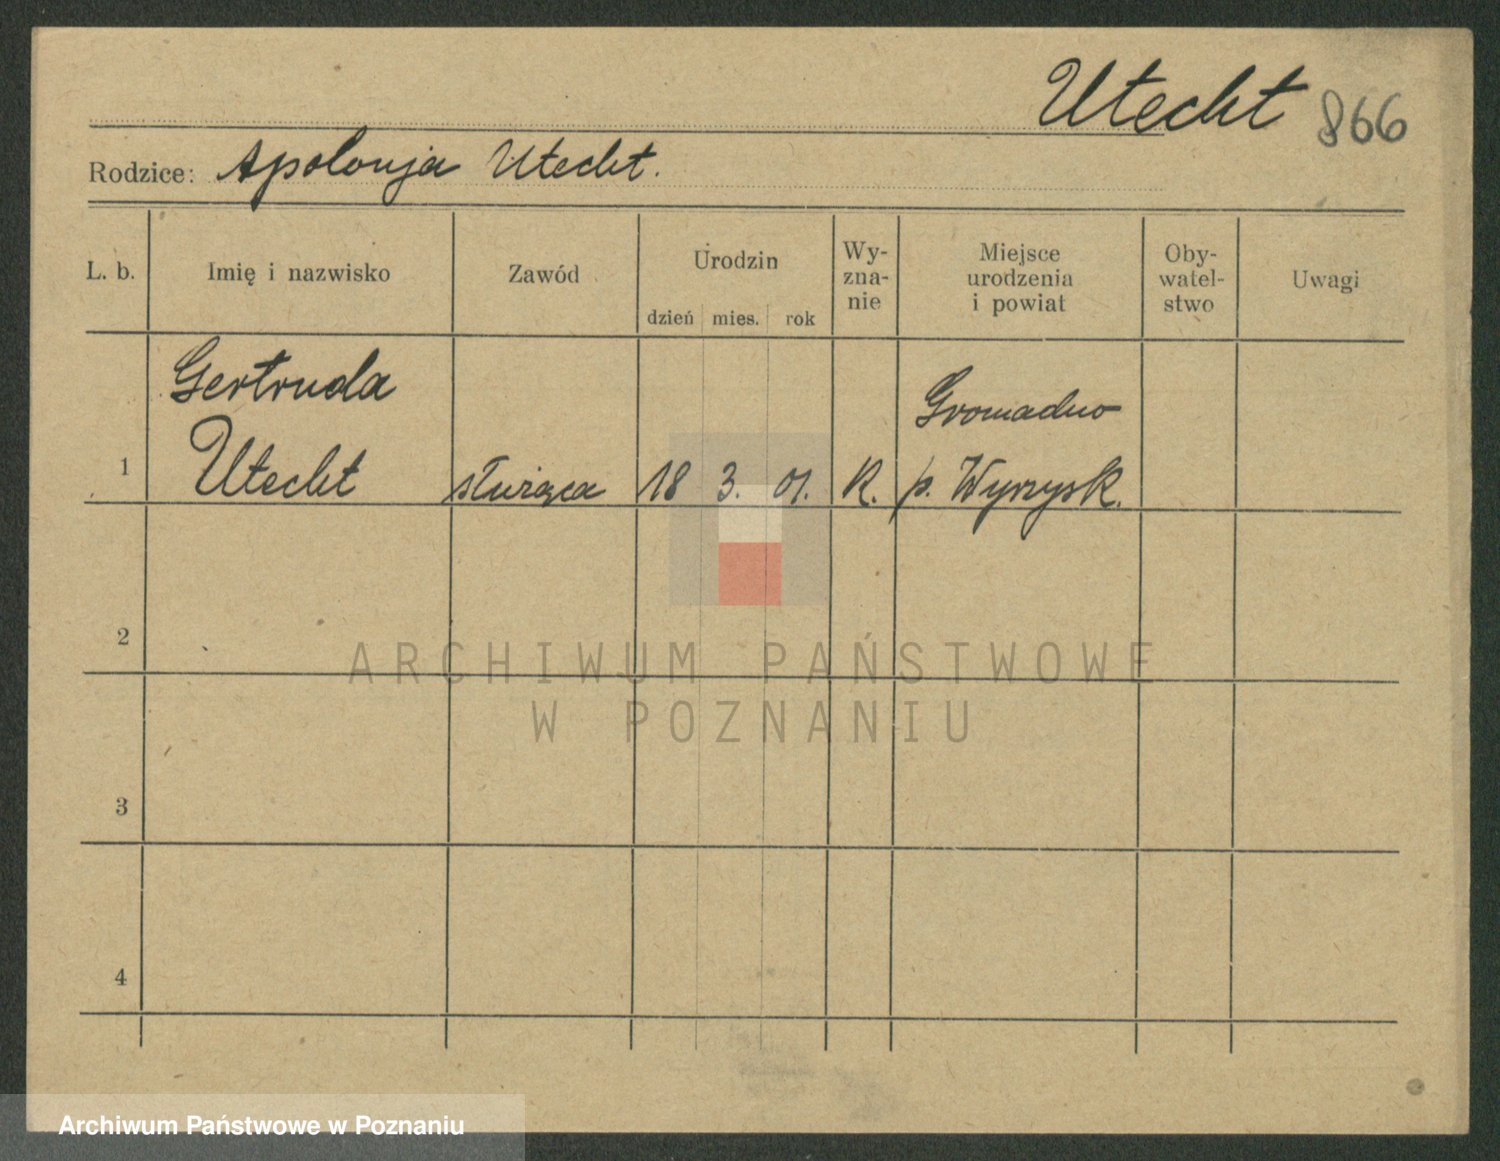 Utecht 866
Rodzice: Apolonja Utecht.
L. b. Imię i nazwisko Zawód Urodzin Wy-zna-nie Miejsce urodzenia i powiat Oby-watel-stwo Uwagi
dzień mies. rok
Gertruda Gromadno
1 Utecht służąca 18 3. 01. R. p. Wyrzysk.
2
ARCHIWUM PAŃSTWOWE
W POZNANIU
3
4
Archiwum Państwowe w Poznaniu